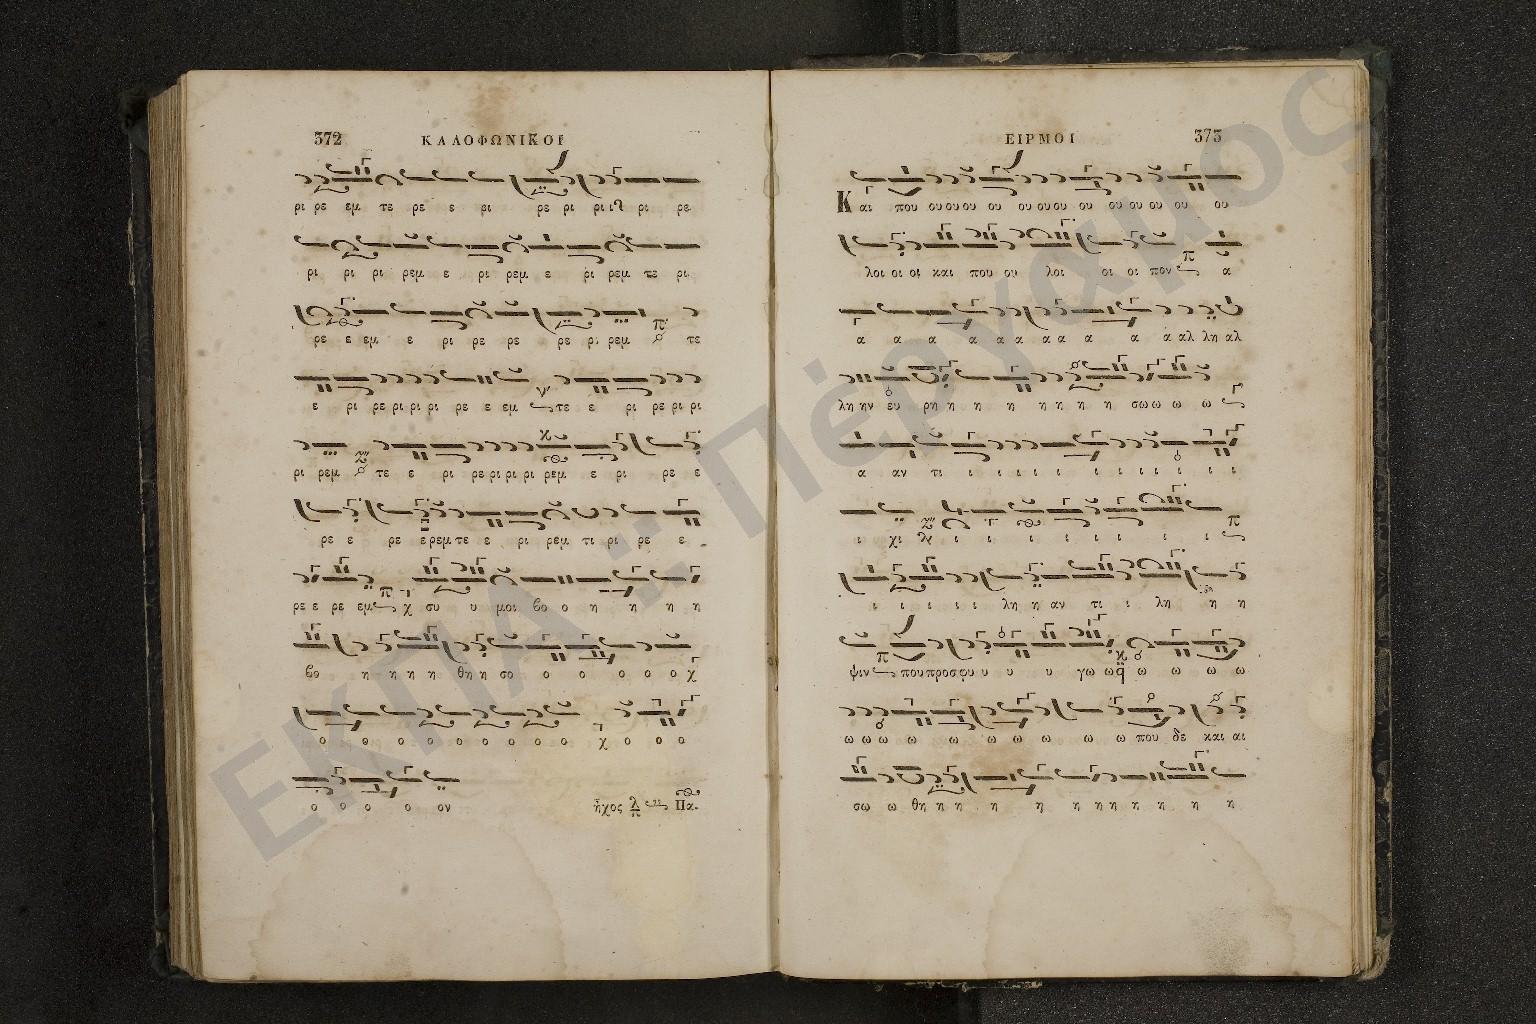 372 ΚΑΛΟΦΩΝΙΚΟΙ
ρι ρε εμ τε ρε ε ρι ρε ρι ρι ρι ρε
ρι ρι ρι ρεμ ε ρι ρεμ ε ρι ρεμ τε ρι
ρε ε εμ ε ρι ρε ρε ρε ρι ρεμ τε
ε ρι ρε ρι ρι ρι ρε ε εμ τε ε ρι ρε ρι ρι
ρι ρεμ τε ε ρι ρε ρι ρι ρι ρεμ ε ρι ρε ε
ρε ε ρε ε ρεμ τε ε ρι ρεμ τι ρι ρε ε
ρε ε ρε εμ χ συ υ μοι βο ο η η η η
βο η η η η θη η σο ο ο ο ο ο χ
ο ο ο ο ο ο ο ο ο ο χ ο ο ο
ο ο ο ο ον ἦχος Πα.
ΕΙΡΜΟΙ 373
Και που ου ου ου ου ου ου ου ου ου ου ου ου ου
λοι οι οι και που ου λοι οι οι πον α
α α α α α α α α α α αλ λη αλ
λη ην ευ ρη η η η η η η η σω ω ω ω
α αν τι ι ι ι ι ι ι ι ι ι ι ι
ι χι ι ι ι ι ι ι ι ι
ι ι ι ι ι λη η αν τι ι λη η η
ψιν που προσ φυ υ υ υ γω ω ω ω ω ω
ω ω ω ω ω ω ω ω ω ω που δε και αι
σω ω θη η η η η η η η η η η η
ΕΚΠΑ :: Πέργαμος